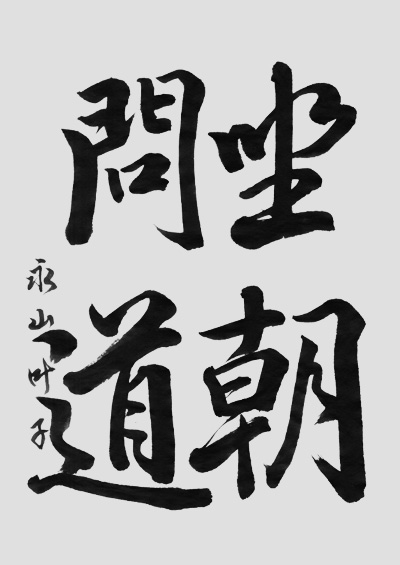 坐朝
問道
永山叶子